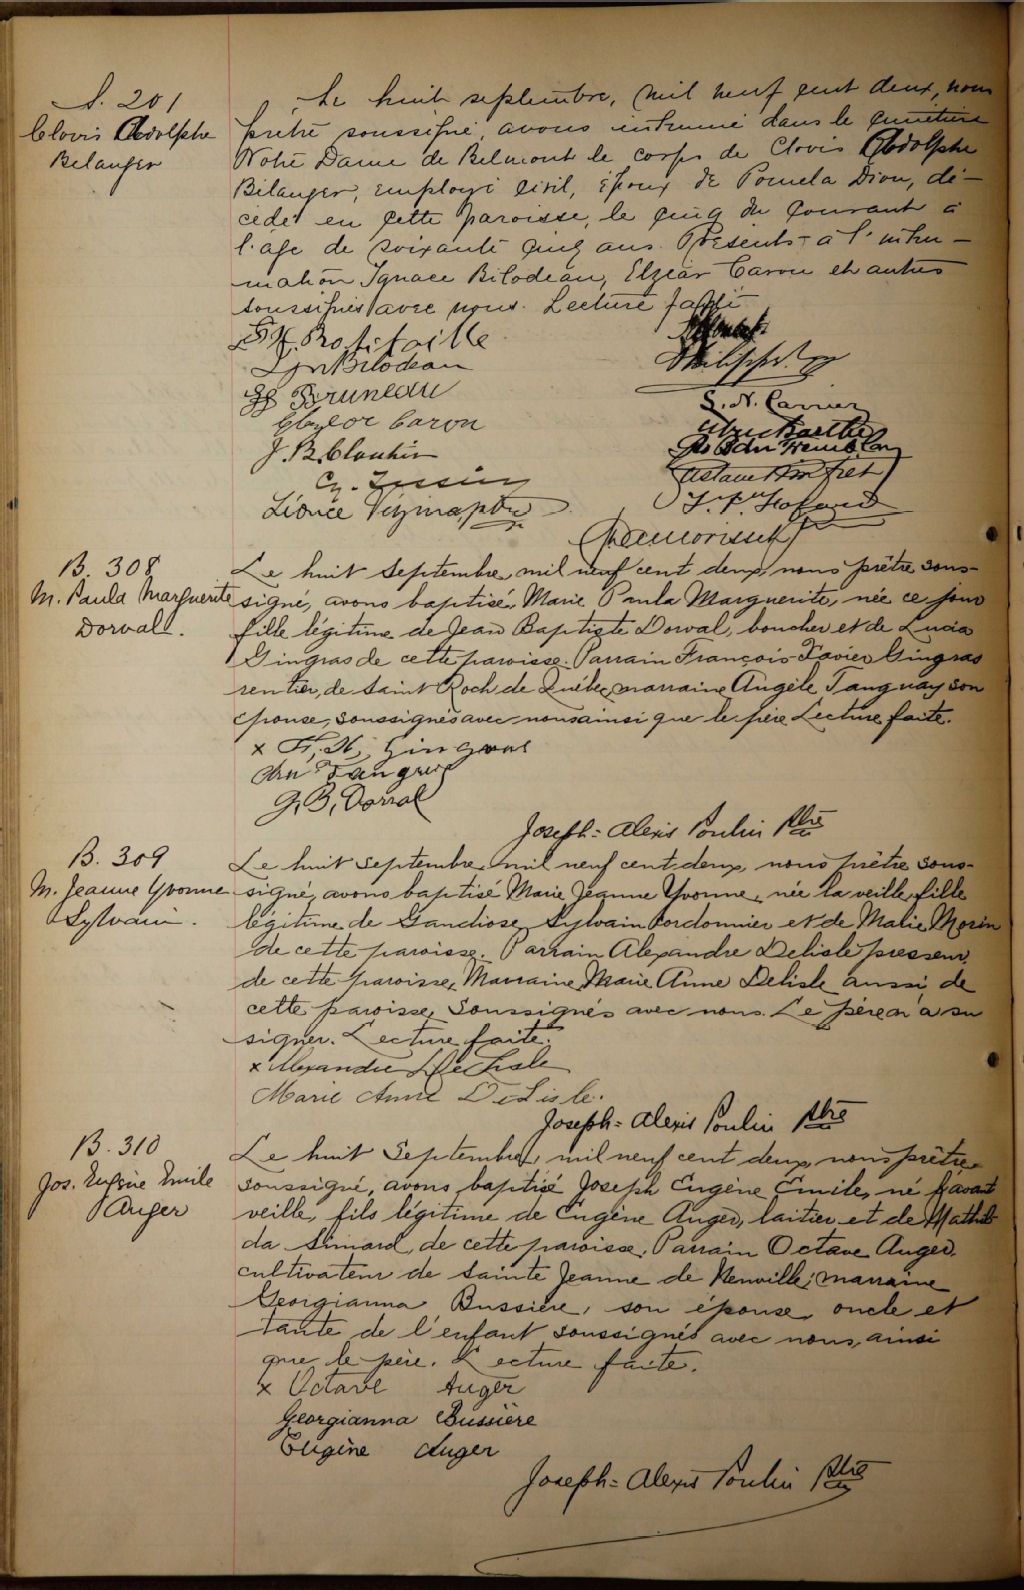 S. 201
Clovis Adolphe
Belanger
Le huit septembre, mil neuf cent deux, nous
prêtre soussigné, avons inhumé dans le cimetière
Notre Dame de Belmont le corps de Clovis Adolphe
Bélanger, employé civil, époux de Pomela Dion, dé-
cédé en cette paroisse, le cinq du courant à
l'age de soixante cinq ans. Présents à l'inhu-
mation Ignace Bilodeau, Elzéar Caron et autres
soussignés avec nous. Lecture faite
Robitaille
Ign Bilodeau
Bruneau
Elzear Caron
J. B. Cloutier
Cy. Tessier
Léonce Vézina, ptre
S. N. Carrier
B. 308
M. Paula Marguerite
Dorval.
Le huit septembre, mil neuf cent deux, nous prêtre sous-
signé, avons baptisé, Marie Paula Marguerite, née ce jour
fille légitime de Jean Baptiste Dorval, boucher et de Lucia
Gingras de cette paroisse. Parrain François-Xavier Gingras
rentier, de Saint Roch de Québec, marraine Angèle Tanguay son
épouse, soussignés avec nous ainsi que le père. Lecture faite.
x F. X. Gingras
J. B. Dorval
Joseph-Alexis Poulin Ptre
B. 309
M. Jeanne Yvonne
Sylvain.
Le huit septembre, mil neuf cent deux, nous prêtre sous-
signé, avons baptisé Marie Jeanne Yvonne, née la veille, fille
légitime de Gaudiose Sylvain Cordonnier et de Marie Morin
de cette paroisse. Parrain Alexandre Delisle presseur,
de cette paroisse, Marraine Marie Anne Delisle aussi de
cette paroisse, soussignés avec nous. Le père n'a su
signer. Lecture faite.
x Alexandre DeLisle
Marie Anne DeLisle.
Joseph-Alexis Poulin Ptre
B. 310
Jos. Eugène Emile
Auger
Le huit Septembre, mil neuf cent deux, nous prêtre
soussigné, avons baptisé Joseph Eugène Emile, né l'avant
veille, fils légitime de Eugène Auger, laitier et de Mathil-
da Simard, de cette paroisse. Parrain Octave Auger,
cultivateur de Sainte Jeanne de Neuville; marraine
Georgianna Bussière, son épouse, oncle et
tante de l'enfant soussignés avec nous, ainsi
que le père. Lecture faite.
x Octave Auger
Georgianna Bussière
Eugène Auger
Joseph-Alexis Poulin Ptre